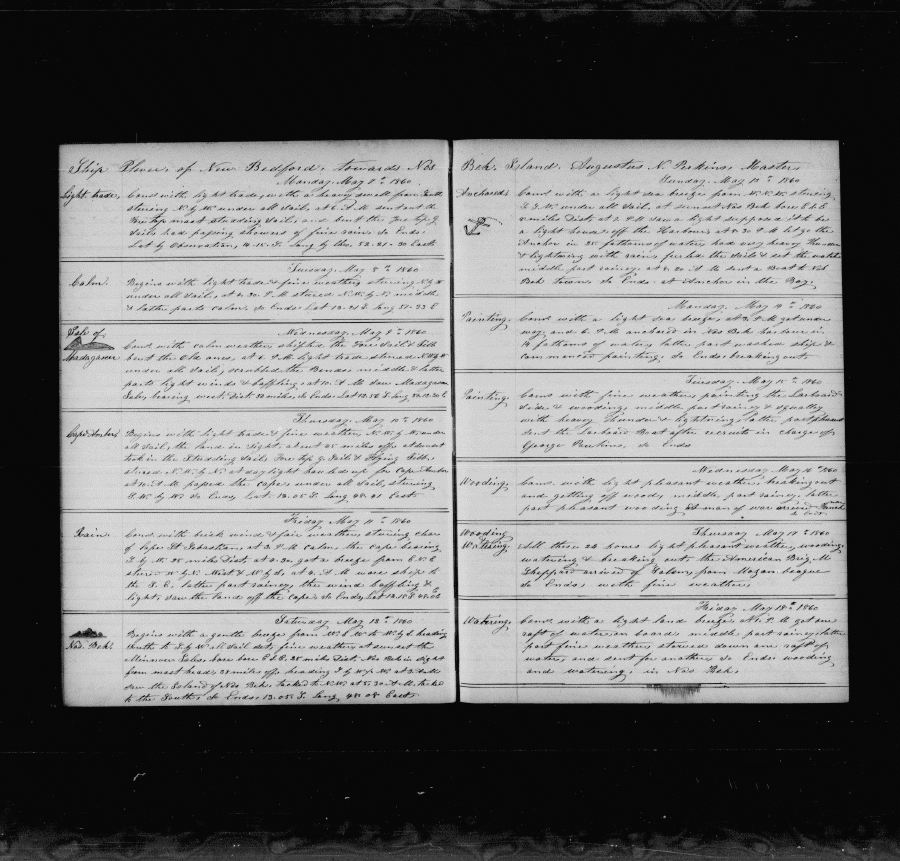 Ship Plover of New Bedford, towards Nos
Monday May 7th 1860
Light trade,
Coms with light trade, with a heavy swell from South
stering N by W under all sail, at 6 A.M sent out the
top mast studding sail, and bent the Fore top G.
sails had passing showers of fine rain. So Ends
Lat by Observation, 14.15. S. Long by Chro. 52.21.30 East
Tuesday May 8th 1860
Calm.
Begins with light trade & fine weather, stering N by W
under all sail, at 4.30. P.M stered N.W. by N. middle
& latter parts calm. So Ends Lat 13.21 S. Long 51.33 E
Wednesday May 9th 1860
Isle of
Madagascar
Coms with calm weather, shifted the Fore Sail & Jibb
bent the Old ones, at 6 P.M light trade stered
under all sail, scrubbed the Bends middle & latter
parts light winds & baffling, at 10. A.M saw Madagascar
Isles bearing west. dist 30 miles, So Ends. Lat 12.56 S. Long
Thursday May 10th 1860
Cape Amber
Begins with light trade & fine weather, N.W. by N. under
all sail, the land in sight, about 25 miles off, at sunset
took in the Studding sails, Fore top G. Sail & Flying Jibb,
stered N.W. by N. at day light hauled up for Cape Amber
at 10. A.M passed the cape, under all sail, stering
S.W. by W. So Ends, Lat 12.05 S. Long 48.51 East
Friday May 11th 1860
Rain.
Coms with brisk wind & fair weather, stering clear
of Cape St Sebastian, at 2 P.M calm, the cape bearing
S. by W. 25 miles Dist, at 2.30 got a breeze from
at 4. A.M wore ship to
the S.E. latter part rainey, the wind baffling &
light, saw the land off the Cape. So Ends, Lat
Saturday May 12th 1860
Nos. Beh.
Begins with a gentle breeze from W.S.W to W. by S. heading
South to S. by W. all sail set, fine weather at sunset the
Minerow Isles bore E.S.E. 25 miles Dist. Nos Beh in sight
from mast head 35 miles off, heading S by W
saw the Island of Nos Beh, tacked to N.W at 5.30. A.M. tacked
to the South, So Ends. 13.05 S. Long 48.08 East
Beh. Island. Augustus N. Perkins, Master
Sunday, May 13th 1860
Anchored.
Coms with a light sea breeze from W.N.W. stering
S.S.W. under all sail, at sunset Nos Beh bore E.b.S
8 miles Dist, at 7. P.M saw a light supposed it to be
a light house off the Harbour, at 8.30 P.M let go the
Anchor in 25 fathoms of water, had very heavy thunder
& lightning with rain, furled the sails & set the watch
middle part rainey, at 8.30 A.M sent a Boat to Nos
Beh town, So Ends. at Anchor in the Bay
Monday May 14th 1860
Painting.
Coms with a light sea breeze, at 2. P.M got under
way, and 6. P.M anchored in Nos Beh harbour in
14 fathoms of water, latter part washed ship &
commenced painting, So Ends breaking out
Tuesday, May 15th 1860
Painting.
Coms with fine weather, painting the Larboard
side & wooding, middle part rainey & squally
with heavy thunder & lightning, latter part pleasant
sent the Larboard Boat after recruits in charge of
George Perkins, So Ends
Wednesday May 16th 1860
Wooding.
Coms with light pleasant weather, breaking out
and getting off wood, middle part rainey, latter
part pleasant wooding a man of war arrived French
Thursday May 17th 1860
Wooding
Watering.
All these 24 hours light pleasant weather, wooding,
watering & breaking out, the American Brig M.
Sheppard arrived of Salem, from Mozambique
So Ends, with fine weather
Friday May 18th 1860
Watering.
Coms with a light land breeze, at 2. P.M got one
raft of water on board, middle part rainey, latter
part fine weather, stowed down one raft of
water, and sent for another, So Ends wooding
and watering in Nos Beh.